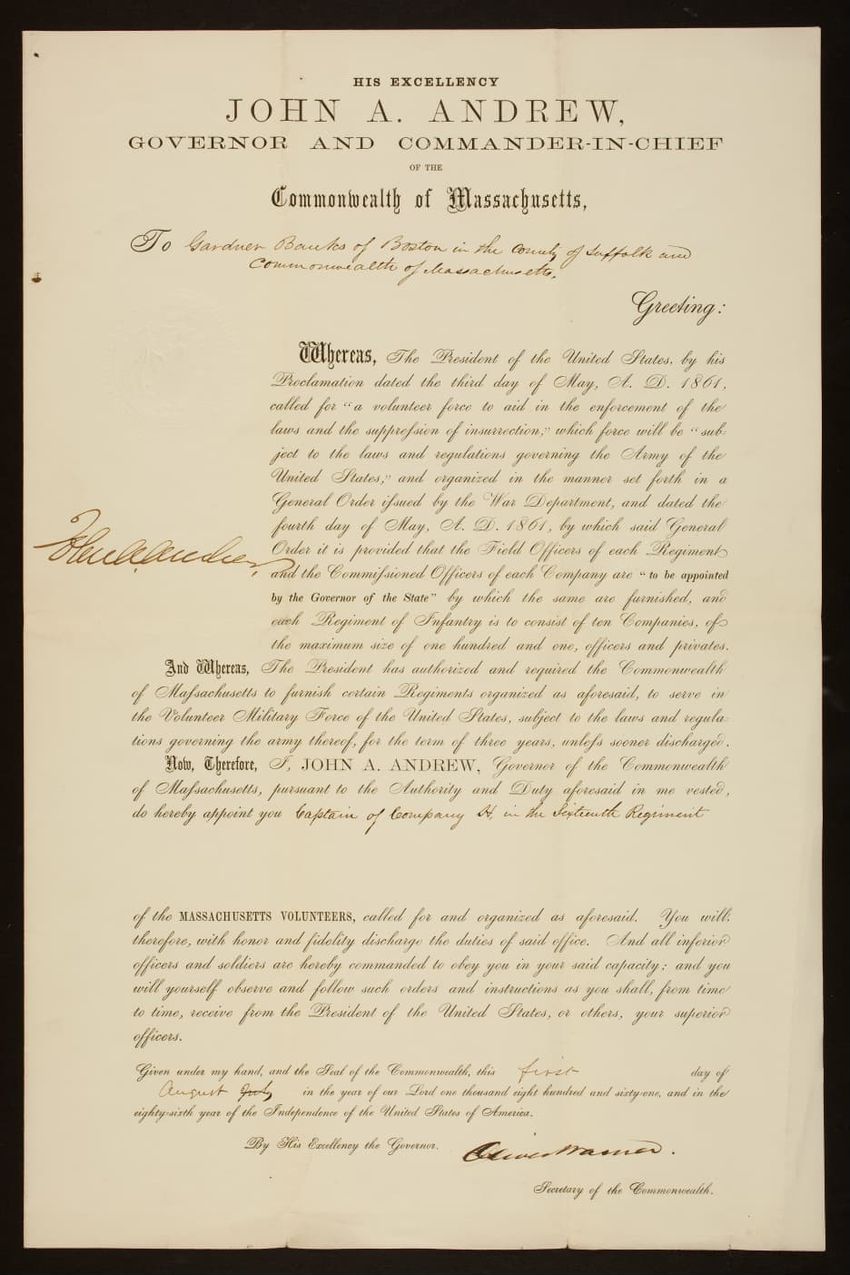 HIS EXCELLENCY
JOHN A. ANDREW,
GOVERNOR AND COMMANDER-IN-CHIEF
OF THE
Commonwealth of Massachusetts,
To Gardner Banks of Boston in the County of Suffolk and
Commonwealth of Massachusetts.
Greeting:
Whereas, The President of the United States, by his
Proclamation dated the third day of May, A. D. 1861,
called for "a volunteer force to aid in the enforcement of the
laws and the suppression of insurrection;" which force will be "sub-
ject to the laws and regulations governing the Army of the
United States," and organized in the manner set forth in a
General Order issued by the War Department, and dated the
fourth day of May, A. D. 1861, by which said General
John A. Andrew
Order it is provided that the Field Officers of each Regiment
and the Commissioned Officers of each Company are "to be appointed
by the Governor of the State" by which the same are furnished, and
each Regiment of Infantry is to consist of ten Companies, of
the maximum size of one hundred and one, officers and privates.
And Whereas, The President has authorized and required the Commonwealth
of Massachusetts to furnish certain Regiments organized as aforesaid, to serve in
the Volunteer Military Force of the United States, subject to the laws and regula-
tions governing the army thereof, for the term of three years, unless sooner discharged.
Now, Therefore, I, JOHN A. ANDREW, Governor of the Commonwealth
of Massachusetts, pursuant to the Authority and Duty aforesaid in me vested,
do hereby appoint you Captain of Company H, in the Sixteenth Regiment
of the MASSACHUSETTS VOLUNTEERS, called for and organized as aforesaid. You will:
therefore, with honor and fidelity discharge the duties of said office. And all inferior
officers and soldiers are hereby commanded to obey you in your said capacity; and you
will yourself observe and follow such orders and instructions as you shall, from time
to time, receive from the President of the United States, or others, your superior
officers.
Given under my hand, and the Seal of the Commonwealth, this first day of
August July in the year of our Lord one thousand eight hundred and sixty-one, and in the
eighty-sixth year of the Independence of the United States of America.
By His Excellency the Governor.
Oliver Warner.
Secretary of the Commonwealth.